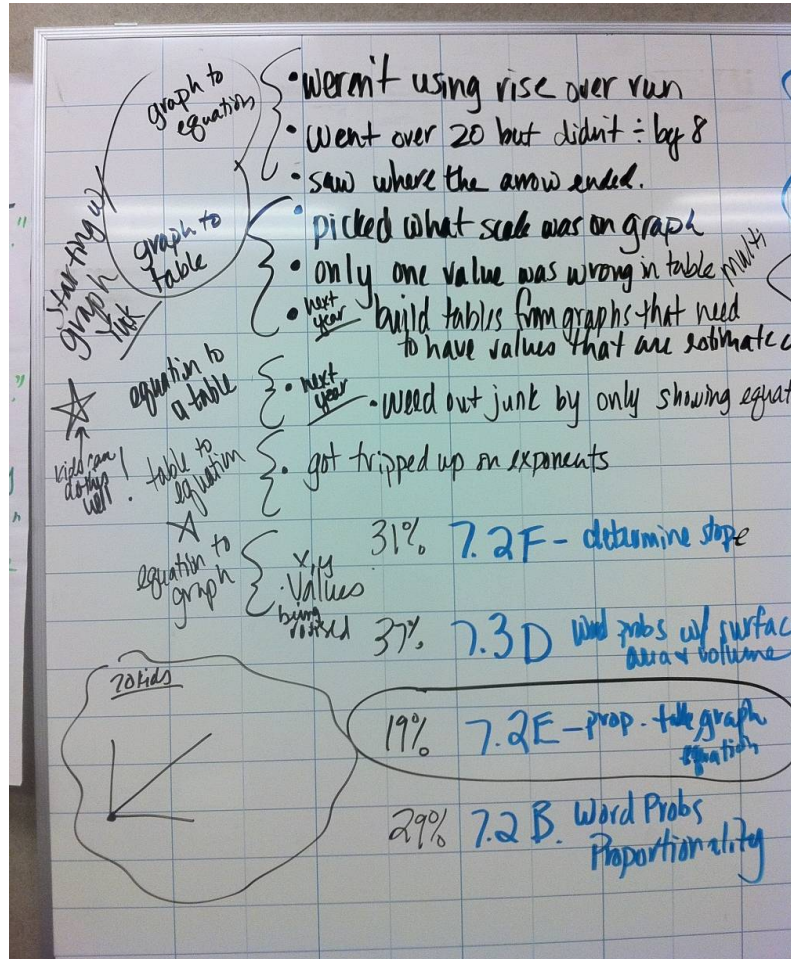 graph to
equation
• weren't using rise over run
• went over 20 but didn't ÷ by 8
• saw where the arrow ended.
starting w/
graph
graph to
table
• picked what scale was on graph
• only one value was wrong in table multi
• next year build tables from graphs that need
to have values that are estimate
equation to
a table
• next year • weed out junk by only showing equat
kids can
do this
well!
table to
equation
• got tripped up on exponents
equation to
graph
x,y
values
being
31% 7.2F - determine slope
37% 7.3D Word probs w/ surfac
area & volume
70 kids
19% 7.2E - prop. - table graph
equation
29% 7.2B. Word Probs
Proportionality